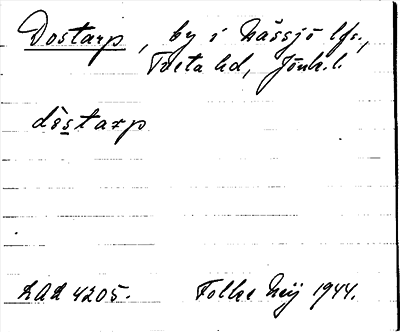 Dostarp, by i Nässjö lfs.,
Tveta hd, Jönk. l.
dòstarp
LAL 4205. Folke Neij 1944.